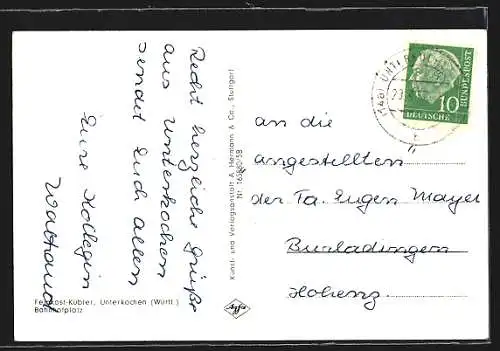 Recht herzliche Grüße
aus Unterkochen
sendet Euch allen
Eure Kollegin
Waltraud
Feinkost-Kübler, Unterkochen (Württ.)
Bahnhofplatz
Kunst- und Verlagsanstalt A. Hermann & Co., Stuttgart
Agfa
DEUTSCHE
BUNDESPOST
10
An die
Angestellten
der Fa. Eugen Mayer
Burladingen
Hohenz.